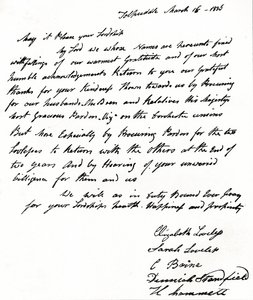 Tolpuddle March 16 - 1836
May it Please your Lordship
My Lord we whose Names are hereunto fixed
with feelings of our warmest Gratitude and of our most
humble acknowledgements Return to you our Gratful
thanks for your Kindness Shown towards us by Procuring
for our Husbands, and Relatives his Majestys
most Gracious Pardon, on the Dorchester unions
But more Especially by Procuring Pardon for the two
Loveless to Return with the Others at the End of
two years And by Hearing of your unwearied
Diligence for them and us
We wish as in Duty Bound Ever Pray
for your Lordships health Happiness and prosperity
Elizabeth Loveless
Sarah Loveless
E Brine
Standfield
H hammett